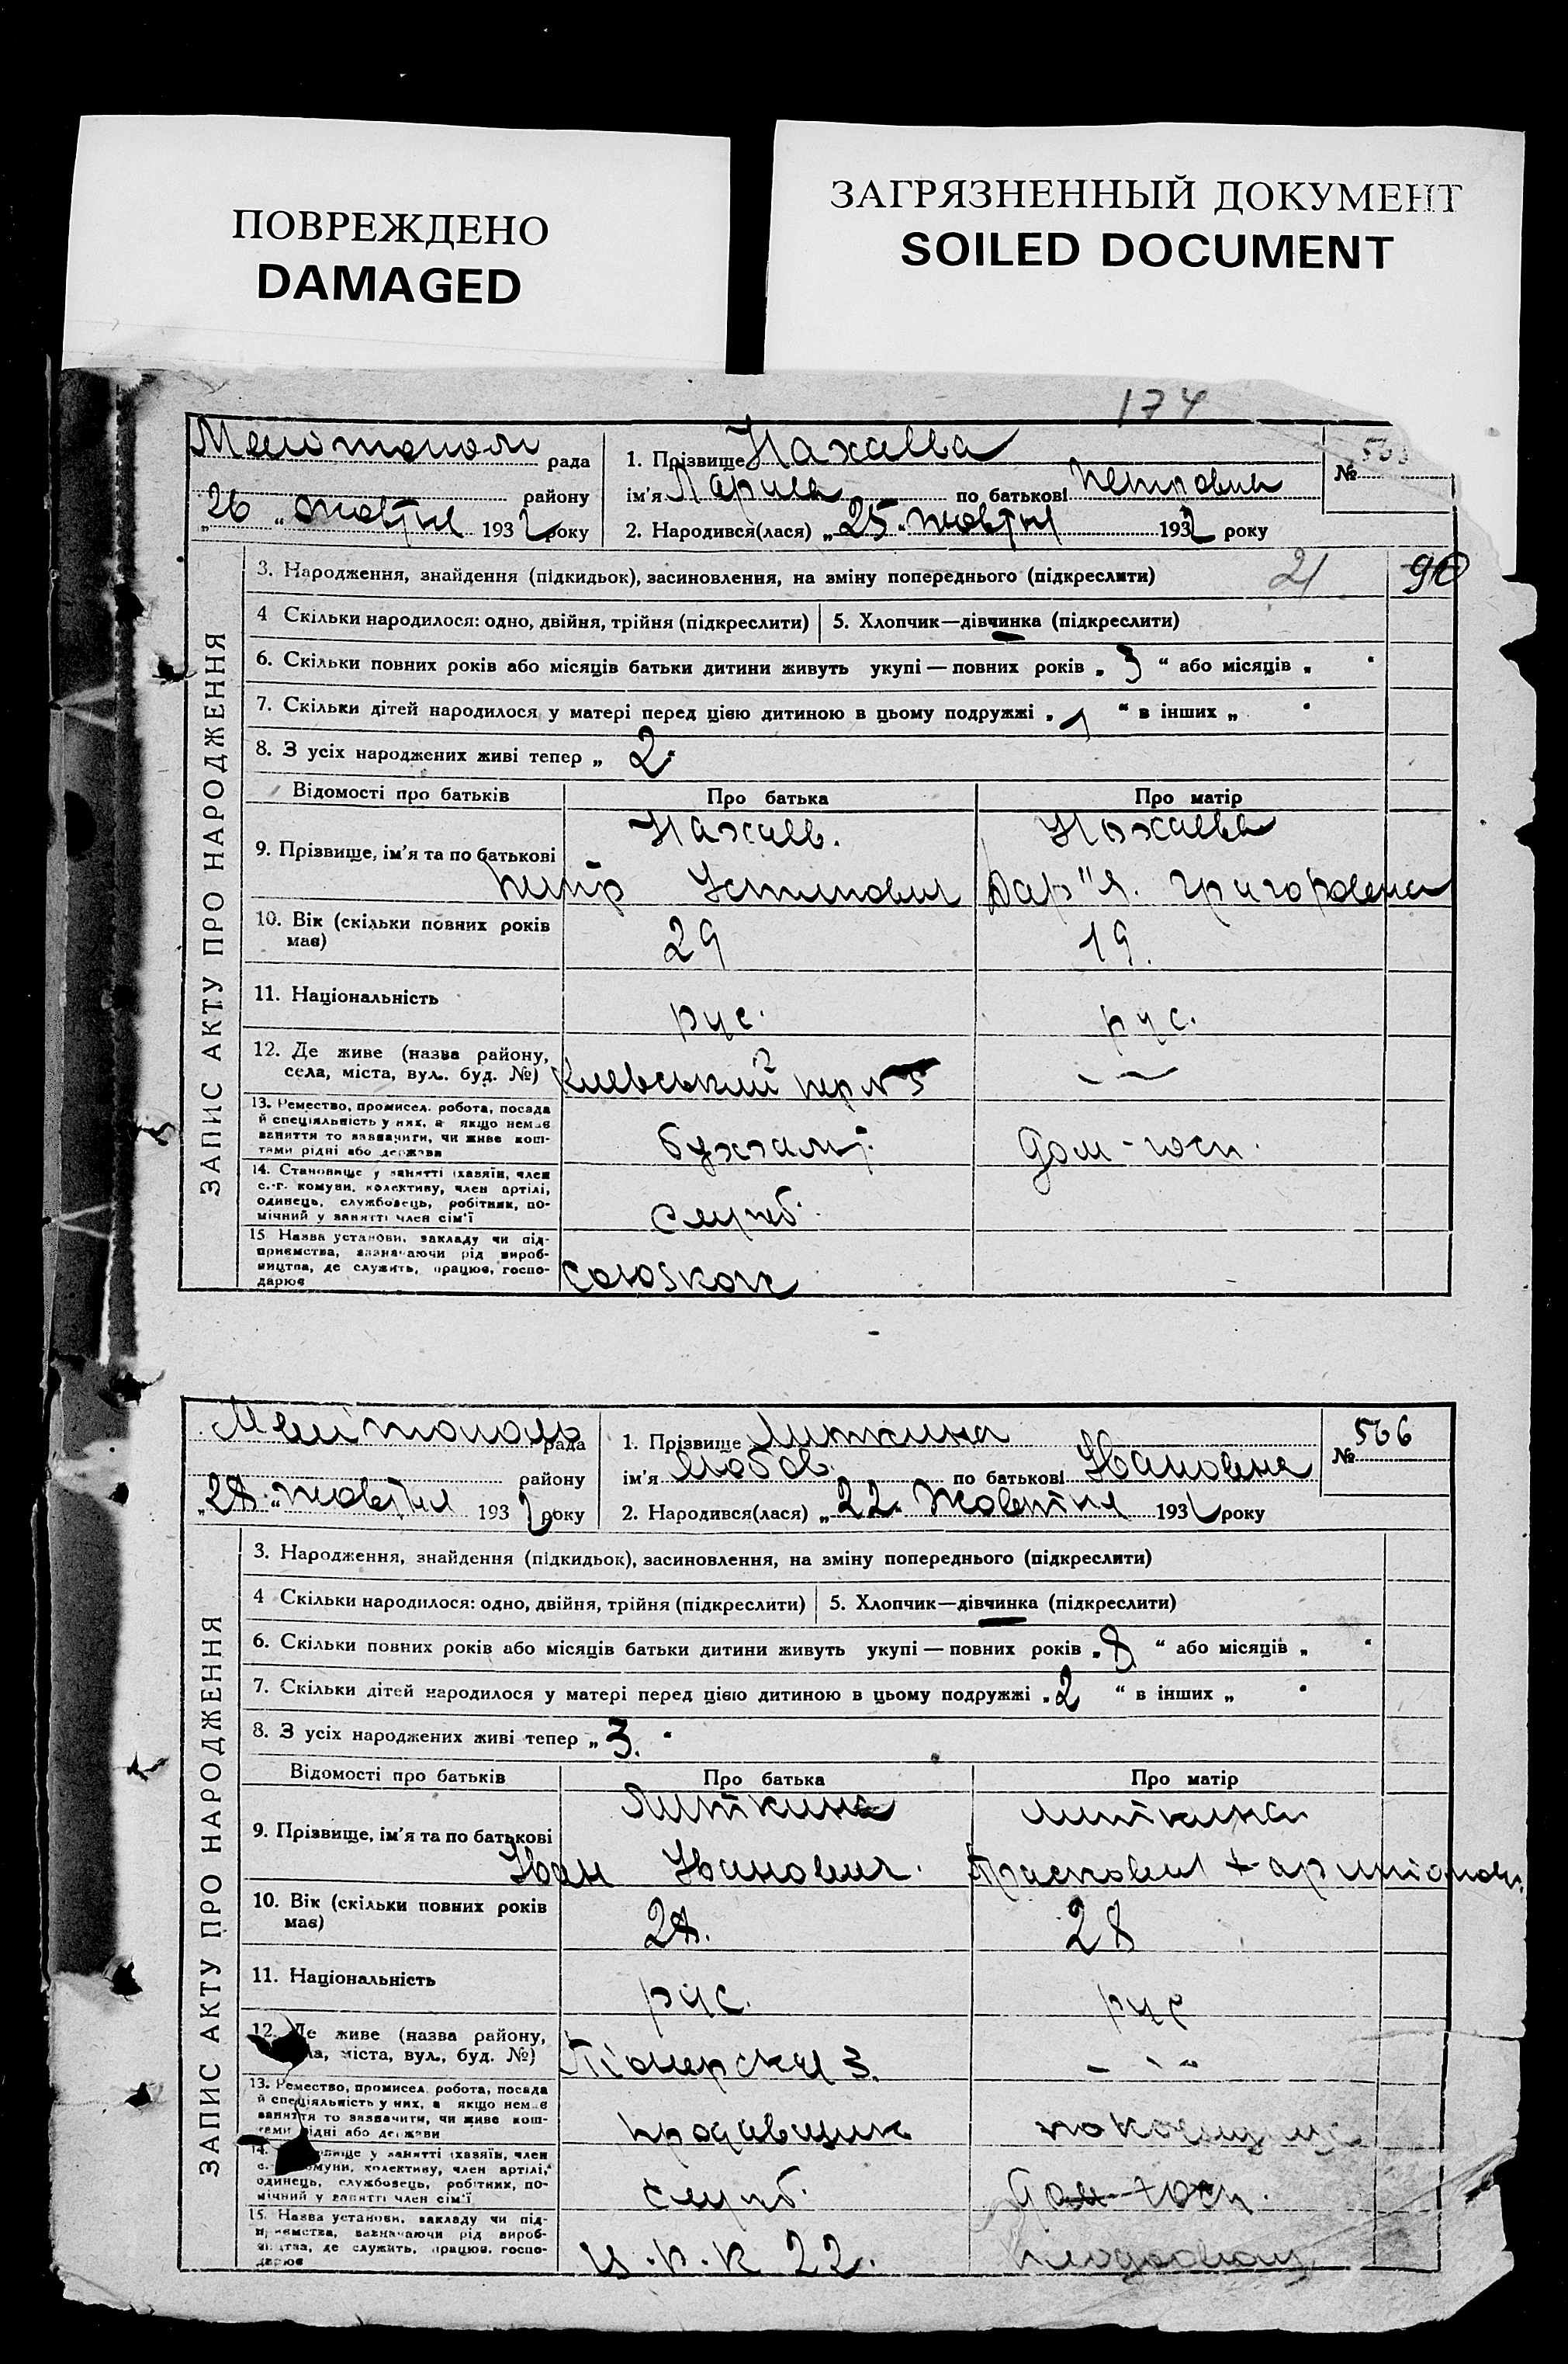 ПОВРЕЖДЕНО
DAMAGED
ЗАГРЯЗНЕННЫЙ ДОКУМЕНТ
SOILED DOCUMENT
174
Мелітополь рада
1. Прізвище Нахаева
№
району
ім'я Лариса по батькові Петровна
„26“ жовтня 1932 року
2. Народився(лася) „25“ жовтня 1932 року
ЗАПИС АКТУ ПРО НАРОДЖЕННЯ
3. Народження, знайдення (підкидьок), засиновлення, на зміну попереднього (підкреслити) 21 90
4 Скільки народилося: одно, двійня, трійня (підкреслити)
5. Хлопчик—дівчинка (підкреслити)
6. Скільки повних років або місяців батьки дитини живуть укупі — повних років „3“ або місяців „ “
7. Скільки дітей народилося у матері перед цією дитиною в цьому подружжі „1“ в інших „ “
8. З усіх народжених живі тепер „2“
Відомості про батьків
Про батька
Про матір
9. Прізвище, ім'я та по батькові
Нахаев.
Петр Устинович
Нахаева
Дар"я. Григоровена
10. Вік (скільки повних років має)
29
19.
11. Національність
рус.
рус.
12. Де живе (назва району, села, міста, вул. буд. №)
Киевський пер № 5
— —
13. Ремество, промисел, робота, посада й спеціяльність у них, а якщо немає заняття то зазначити, чи живе коштами рідні або держави
бухгалт.
дом-госп.
14. Становище у занятті (хазяїн, член с.-г. комуни, колективу, член артілі, одинець, службовець, робітник, помічний у занятті член сім'ї
служб.
15. Назва установи, закладу чи підприємства, зазначаючи рід виробництва, де служить, працює, господарює
Мелітополь рада
1. Прізвище Литкина
№ 566
району
ім'я Любов. по батькові Ивановена
„28“ жовтня 1932 року
2. Народився(лася) „22“ Жовтня 1932 року
ЗАПИС АКТУ ПРО НАРОДЖЕННЯ
3. Народження, знайдення (підкидьок), засиновлення, на зміну попереднього (підкреслити)
4 Скільки народилося: одно, двійня, трійня (підкреслити)
5. Хлопчик—дівчинка (підкреслити)
6. Скільки повних років або місяців батьки дитини живуть укупі — повних років „8“ або місяців „ “
7. Скільки дітей народилося у матері перед цією дитиною в цьому подружжі „2“ в інших „ “
8. З усіх народжених живі тепер „3.“
Відомості про батьків
Про батька
Про матір
9. Прізвище, ім'я та по батькові
Литкина
Иван Иванович.
Литкина
10. Вік (скільки повних років має)
28.
28
11. Національність
рус.
рус
12. Де живе (назва району, села, міста, вул., буд. №)
Піонерская 3.
– – –
13. Ремество, промисел, робота, посада й спеціяльність у них, а якщо немає заняття то зазначити, чи живе коштами рідні або держави
продавщик
14. Становище у занятті (хазяїн, член с.-г. комуни, колективу, член артілі, одинець, службовець, робітник, помічний у занятті член сім'ї
служб.
дом-госп.
15. Назва установи, закладу чи підприємства, зазначаючи рід виробництва, де служить, працює, господарює
ц.р.к 22.